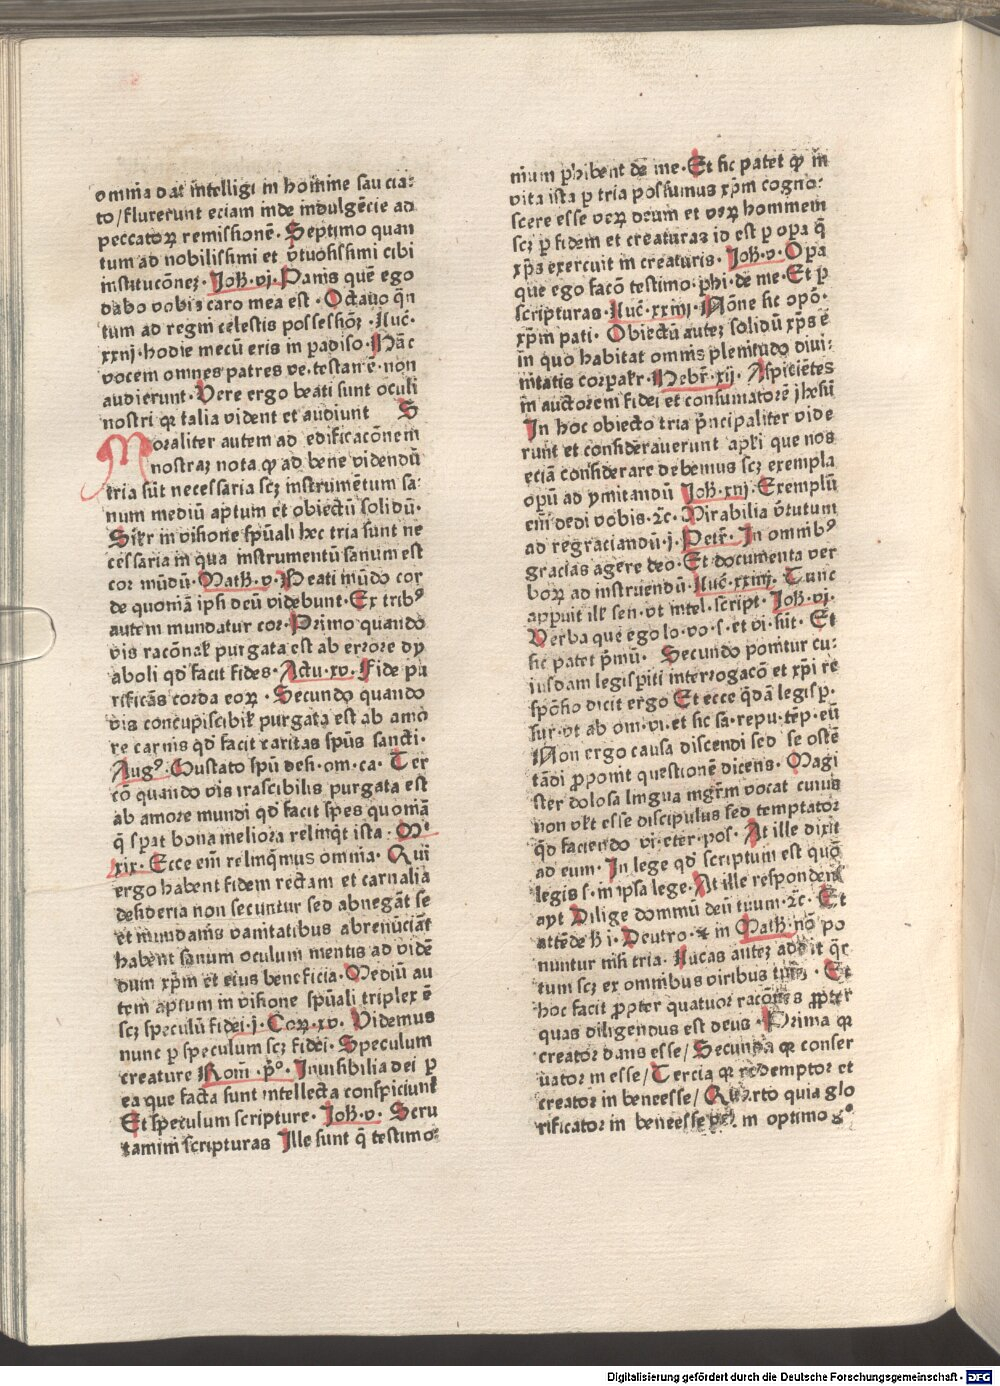 omnia dat intelligi in homine saucia:
to/fluxerunt eciam inde indulgēcie ad
peccatoꝝ remissionē. Septimo quan
tum ad nobilissimi et v̄tuosissimi cibi
institucōneꝫ. Joh̄. vj. Panis quē ego
dabo vobis caro mea est. Octauo qn̄
tum ad regni celestis possessiōꝫ. Luc̄.
xxiij. hodie mecū eris in padiso. Hāc
vocem omnes patres ve. testan̄ē. non
audierunt. Vere ergo beati sunt oculi
nostri qꝛ talia vident et audiunt S
Moraliter autem ad edificacōnem
nostraꝫ nota ꝙ ad bene videndū
tria sūt necessaria scꝫ instrumētum sa:
num mediū aptum et obiectū solidū.
Sil̄r in visione spūali hec tria sunt ne
cessaria in qua instrumentū sanum est
cor mūdū. Math̄. v. Beati mūdo cor
de quoniā ipsi deū videbunt. Ex trib⁹
autem mundatur cor. Primo quando
vis racōnal̄ purgata est ab errore dy
aboli qd̄ facit fides. Actu. xv. Fide pu
rificās corda eoꝝ. Secundo quando
vis concupiscibil̄ purgata est ab amo
re carnis qd̄ facit caritas spūs sancti.
Aug⁹. Gustato spū desi. om. ca. Ter
cō quando vis irascibilis purgata est
ab amore mundi qd̄ facit spes quoniā
q̄ sꝑat bona meliora relinq̄t ista. Mᵗ
xix. Ecce em̄ relinq̄mus omnia. Qui
ergo habent fidem rectam et carnalia
desideria non secuntur sed abnegāt se
et mundanis vanitatibus abrenūciāt
habent sanum oculum mentis ad vidē
dum xp̄m et eius beneficia. Mediū au
tem aptum in visione spūali triplex ē
scꝫ speculū fidei. j. Coꝝ. xv. Videmus
nunc ꝑ speculum scꝫ fidei. Speculum
creature Rom̄. p̄º. Inuisibilia dei ꝑ
ea que facta sunt intellecta conspiciunt̄
Et speculum scripture. Joh̄. v. Scru
tamini scripturas Ille sunt q̄ testimo
nium ꝑhibent de me. Et sic patet ꝙ in
vita ista ꝑ tria possumus xp̄m cogno:
scere esse veꝝ deum et veꝝ hominem
scꝫ ꝑ fidem et creaturas id est ꝑ opa q̄
xp̄s exercuit in creaturis. Joh̄. v. Opa
que ego facō testimo. phi. de me. Et ꝑ
scripturas. Luc̄. xxiiij. Nōne sic opō.
xp̄m pati. Obiectū auteꝫ solidū xp̄s ē
in quo habitat omnis plenitudo diui:
nitatis corpal̄r. Hebr̄. xij. Aspiciētes
in auctorem fidei et consumatorē jhesū
In hoc obiecto tria p̄ncipaliter vide
runt et considerauerunt apl̄i que nos
eciā considerare debemus scꝫ exempla
opū ad ymitandū Joh̄. xiij. Exemplū
em̄ dedi vobis. ⁊c. Mirabilia v̄tutum
ad regraciandū. j. Petr̄. In omnib⁹
gracias agere deo. Et documenta ver
boꝝ ad instruendū. Luc̄. xxiiij. Tunc
appuit ill̄ sen. vt intel. script. Joh̄. vj.
Verba que ego lo. vo. s. et vi. sūt. Et
sic patet p̄mū. Secundo ponitur cu:
iusdam legispiti interrogacō et xp̄i re
spōsio dicit ergo Et ecce qdā legisꝑ.
sur. vt ab om. vi. et sic sa. repu. tēp. eū
Non ergo causa discendi sed se ostē
tādi ꝓponit questionē dicens. Magi
ster dolosa lingua mgr̄m vocat cuius
non vl̄t esse discipulus sed temptator
qd̄ faciendo vi. eter. pos. At ille dixit
ad eum. In lege qd̄ scriptum est quō
legis s. in ipsa lege. At ille responden̄
ayt Dilige dominū deū tuum. ⁊c. Et
attēde h̄ i. Deutro. ⁊ in Math̄. nō po
nuntur nisi tria. Lucas auteꝫ addit qr̄
tum scꝫ ex omnibus viribus tuis. Et
hoc facit ꝓpter quatuor racōnes ꝓpter
quas diligendus est deus. Prima qꝛ
creator dans esse/ Secunda qꝛ conser
uator in esse/ Tercia qꝛ redemptor et
creator in beneesse/ Quarto quia glo
rificator in beneesse vel in optimo g°
Digitalisierung gefördert durch die Deutsche Forschungsgemeinschaft - DFG